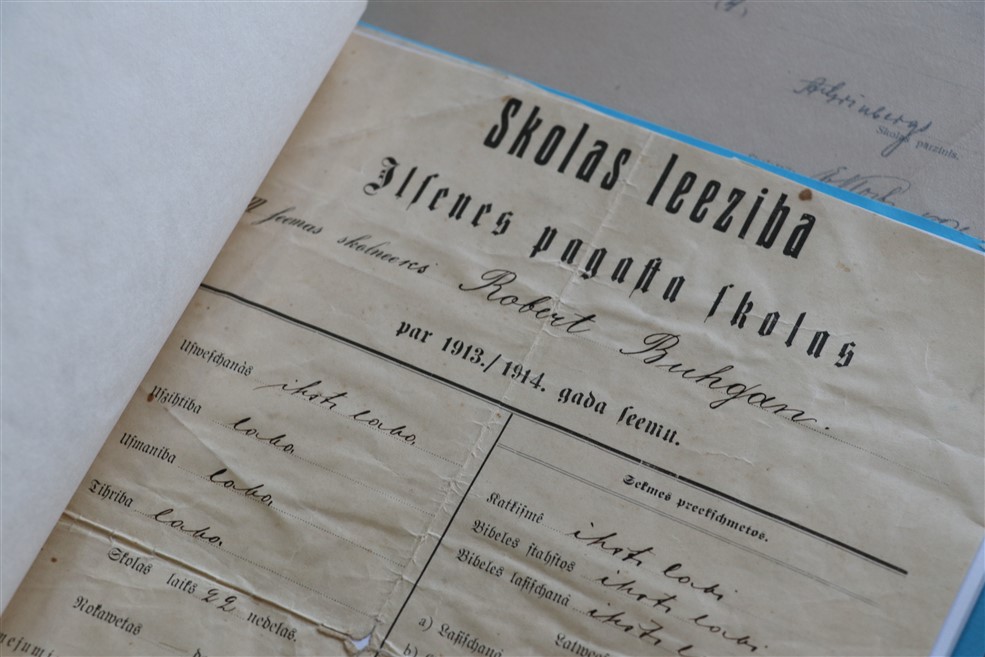 Skolas leeziba
Ilſenes pagaſta ſkolas
ſeemas skolneeks Robert Buhgan.
par 1913./1914. gada ſeemu.
Uſweſchanàs ihsti laba
Uſzihtiba laba
Uſmaniba laba
Tihriba laba
Skolas laiks 22 nedeļas.
Nokawetas
Sekmes preekſchmetos.
Katkiſmê ihsti labi
Bibeles ſtahſtos ihsti labi
Bibeles laſiſchanâ ihsti l
Latwee
a) Laſiſchanâ
b)